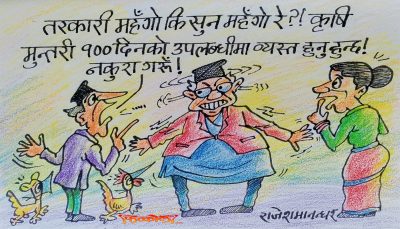 तरकारी महँगो कि सुन महँगो रे?! कृषि
मुन्तरी १०० दिनको उपलब्धीमा व्यस्त हुनुहुन्छ!
नकुरा गरूँ!
राजेशमानन्धर